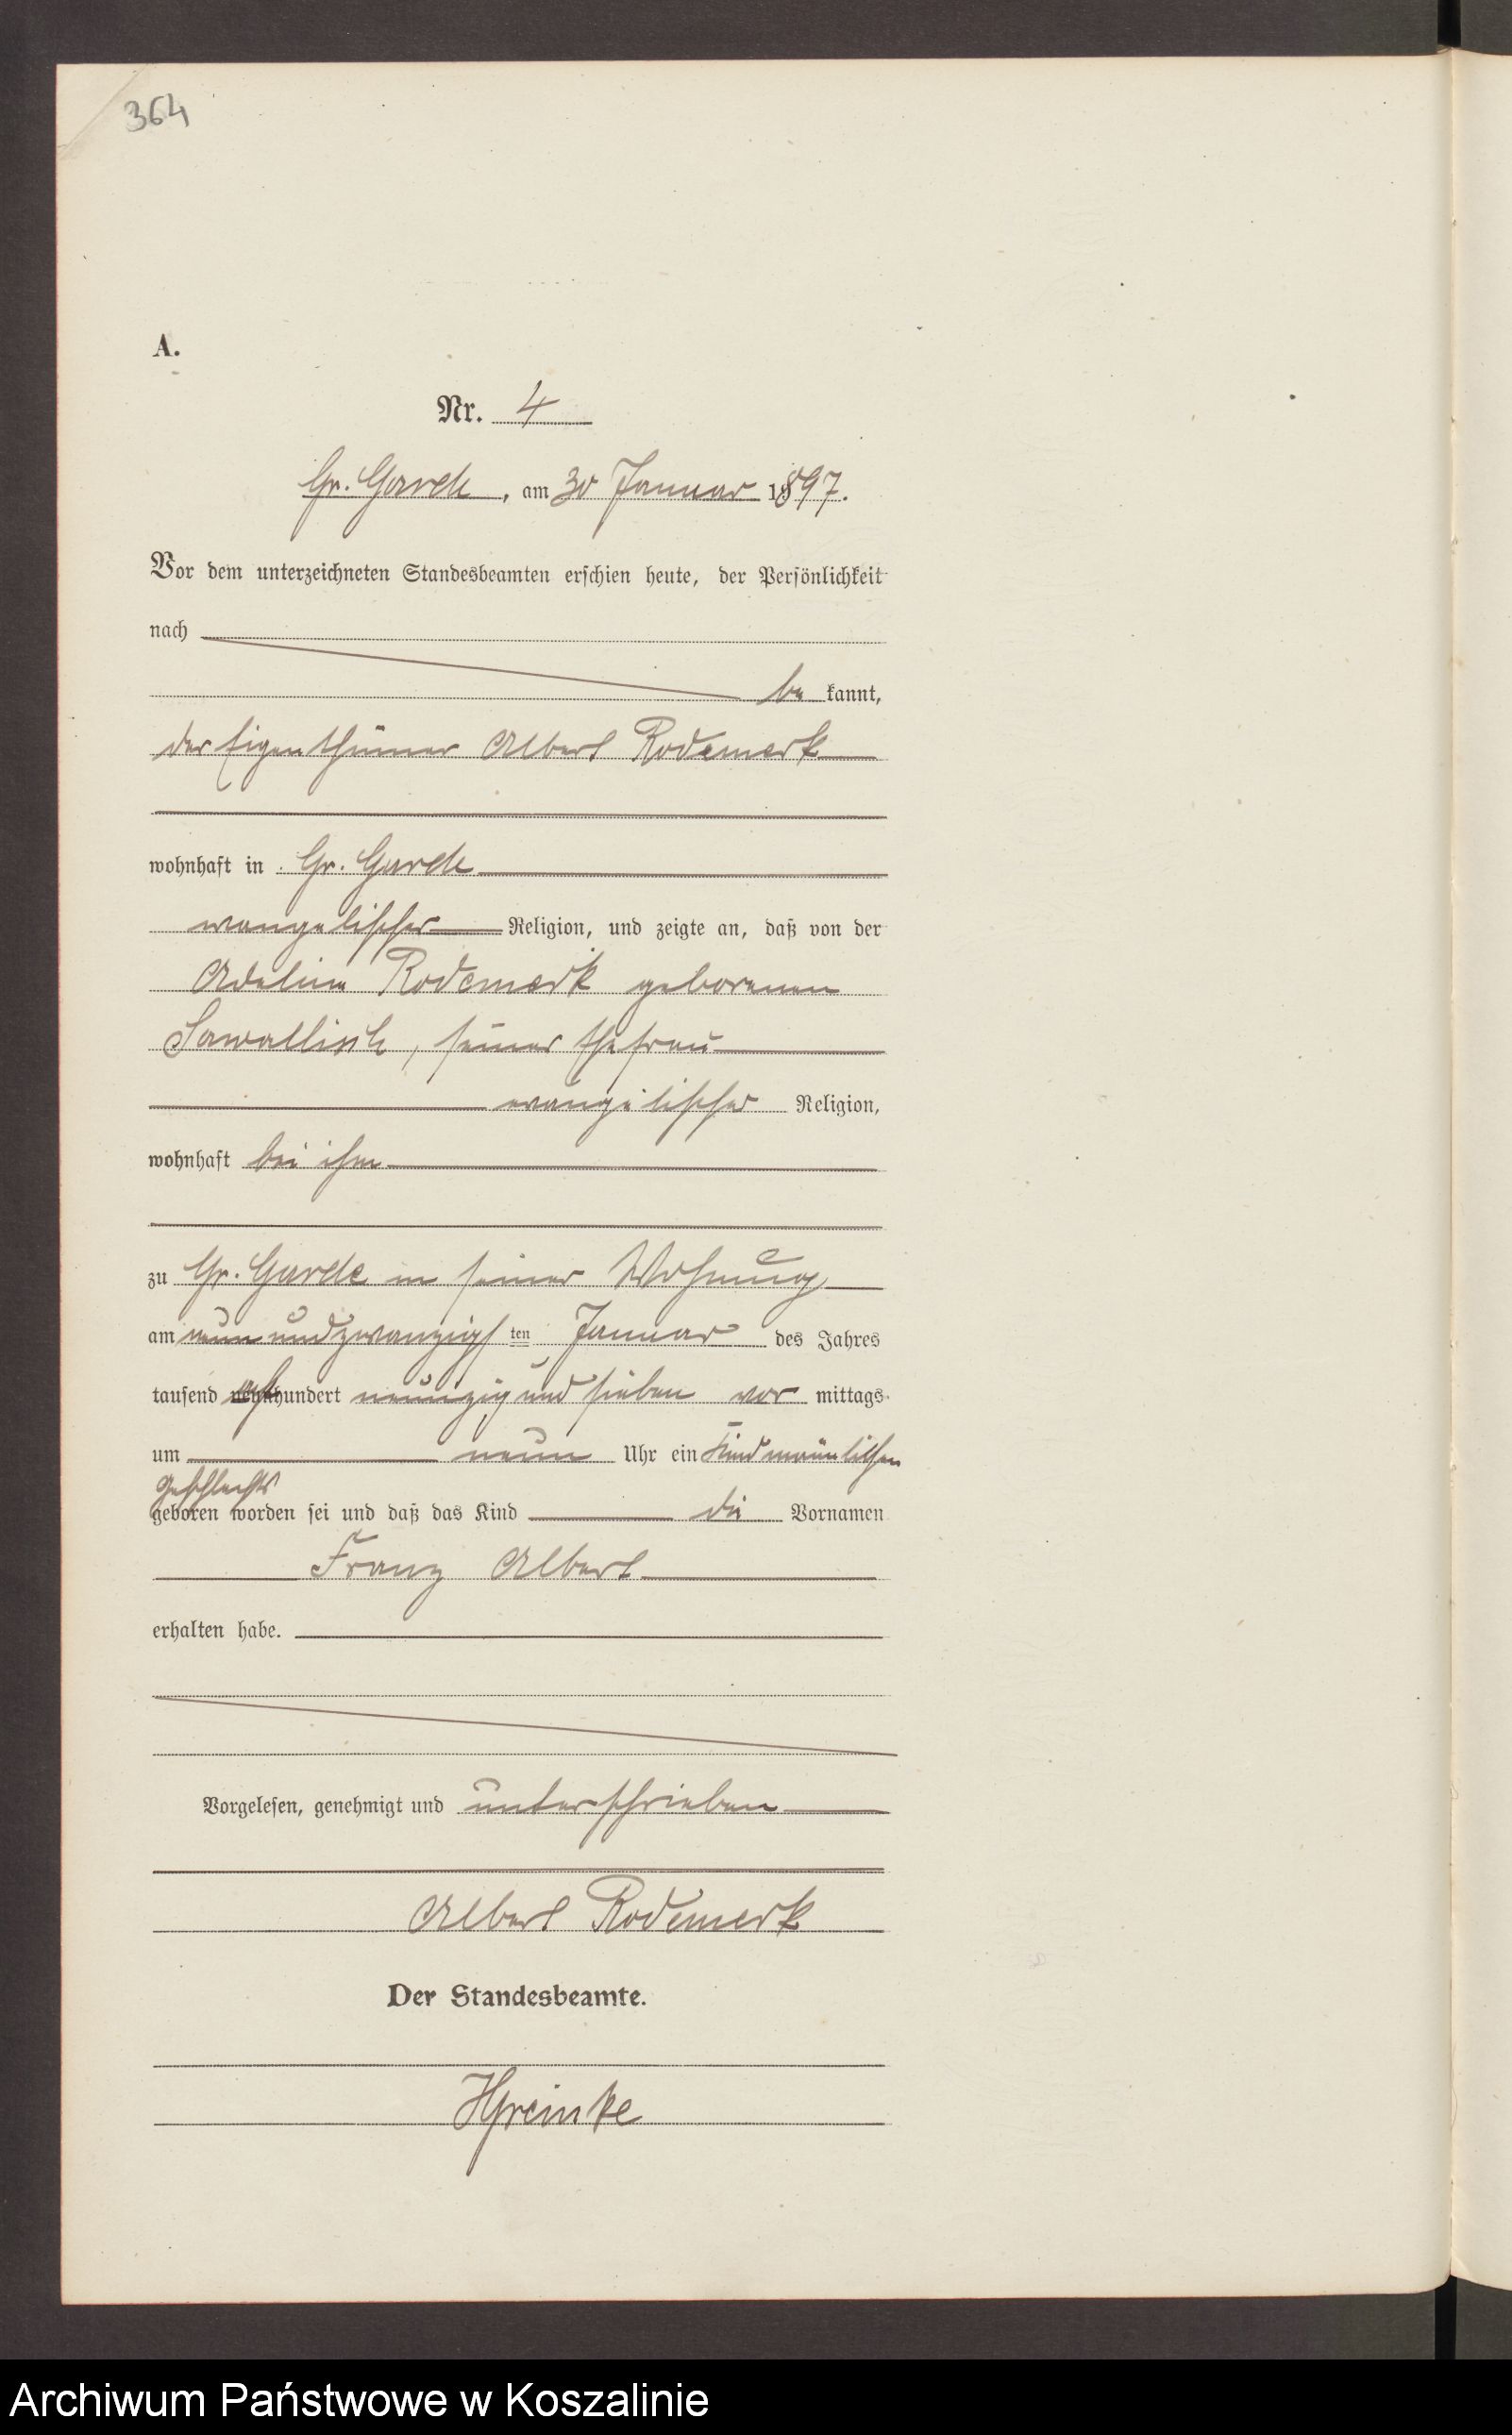 364
A.
Nr. 4
Gr. Garde, am 30 Januar 1897.
Vor dem unterzeichneten Standesbeamten erschien heute, der Persönlichkeit
nach
be kannt,
der Eigenthümer Albert Rodemerk
wohnhaft in Gr. Garde
evangelischer Religion, und zeigte an, daß von der
Adeline Rodemerk geborenen
Sawallisch, seiner Ehefrau
evangelischer Religion,
wohnhaft bei ihm
zu Gr. Garde in seiner Wohnung
am neun und zwanzigsten Januar des Jahres
tausend achthundert neunzig und sieben vor mittags
um neun Uhr ein Kind männlichen
Geschlechts
geboren worden sei und daß das Kind die Vornamen
Franz Albert
erhalten habe.
Vorgelesen, genehmigt und unterschrieben
Albert Rodemerk
Der Standesbeamte.
HGreinke
Archiwum Państwowe w Koszalinie